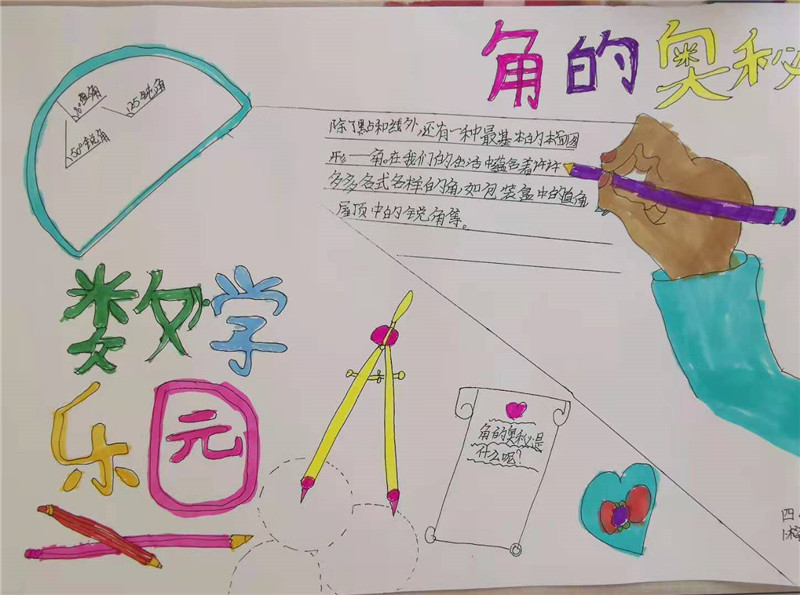 角的奥秘
直角
125°钝角
50°锐角
除了點和线外,还有一种最基本的本面图
形——角。在我们的生活中蕴含着许许
多多各式各样的角,如包装盒中的直角
屋顶中的锐角等。
数学
乐园
角的奥秘是
什么呢?
四